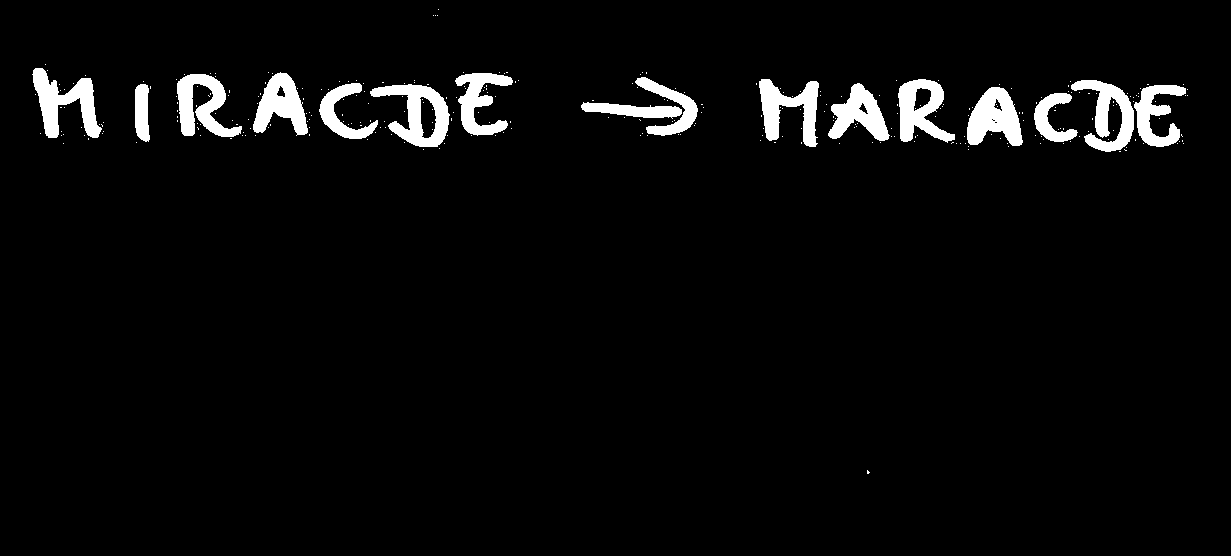 MIRACDE → MARACDE